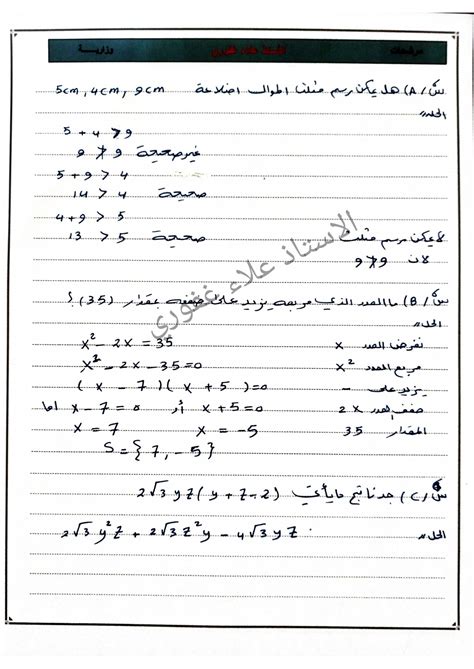 مرشحات أستاذ علاء غفوري وزارية
س/A) هل يمكن رسم مثلث اطوال اضلاعة 5cm, 4cm, 9cm
الحل//
5 + 4 > 9
9 ≯ 9 غير صحيحة
5 + 9 > 4
14 > 4 صحيحة
4 + 9 > 5
13 > 5 صحيحة
لا يمكن رسم مثلث
لان 9 ≯ 9
الاستاذ علاء غفوري
س/B) ما العدد الذي مربعه يزيد على ضعفه بمقدار (35) ؟
الحل//
x² - 2x = 35 نفرض العدد x
x² - 2x - 35 = 0 مربع العدد x²
(x - 7)(x + 5) = 0 يزيد على -
اما x - 7 = 0 أو x + 5 = 0 ضعف العدد 2x
x = 7 x = -5 المقدار 35
S = {7, -5}
س/C) جد ناتج ما يأتي 2√3 yz(y + z - 2)
الحل// 2√3 y²z + 2√3 z²y - 4√3 yz